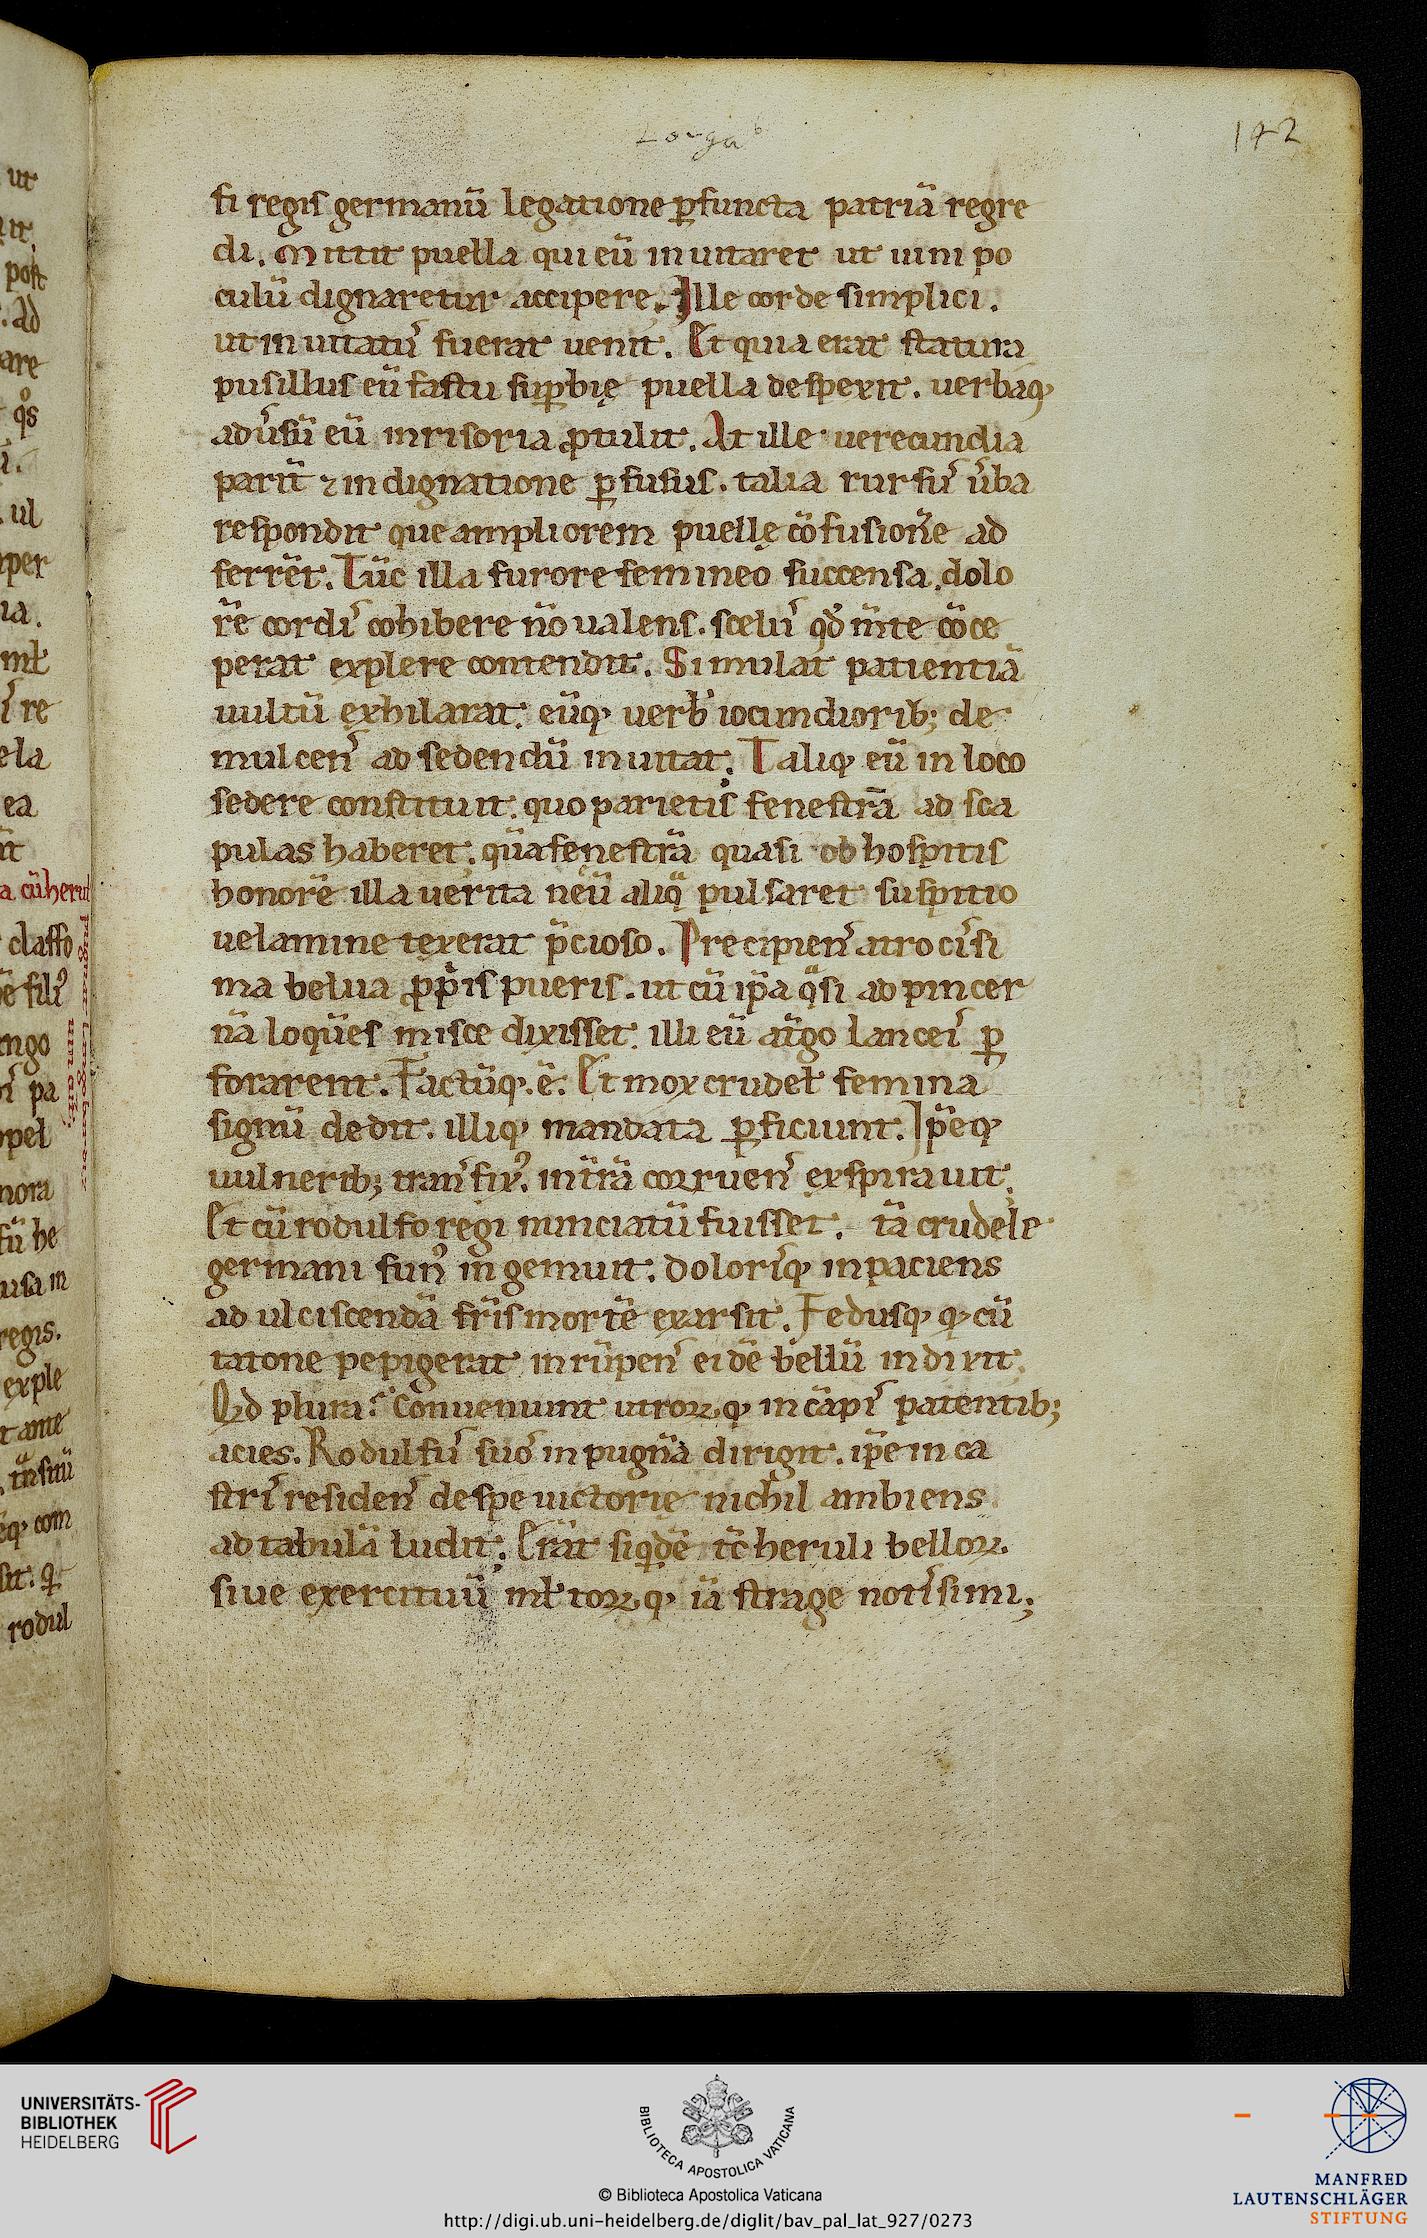 Longaƀ
142
si regis germanū legatione ꝑfuncta patriā regre
di. Mittit puella qui eū inuitaret ut uini po
culū dignaretur accipere. Ille corde simplici.
ut inuitatuˀ fuerat uenit. Et quia erat statura
pusillus eū fastu suꝑbię puella despexit. uerbaqꝫ
aduˀsū eū inrisoria ꝓtulit. At ille uerecundia
parit̄ ⁊ indignatione ꝑfusus. talia rursuˀ ūba
respondit que ampliorem puellę cōfusionē ad
ferret. Tūc illa furore femineo succensa, dolo
rē cordiˀ cohibere nō ualens. sceluˀ qđ m̄te cōce
perat explere contendit. Simulat patientiā
uultū exhilarat. eūqꝫ uerbˀ iocundiorib; de
mulcenˀ ad sedendū inuitat. Taliqꝫ eū in loco
sedere constituit. quo parietis fenestrā ad sca
pulas haberet. quā fenestrā quasi ob hospitis
honorē illa uerita nę̄ū aliq̄ pulsaret suspitio
uelamine texerat p̄cioso. Precipienˀ atrociˀsi
ma belua ꝓpˢis pueris. ut cū ip̄a qᵃsi ad pincer
nā loquēs misce dixisset. illi eū at̄go lanceiˀ ꝑ
forarent. Factūqꝫ. ē. Et mox crudeł femina
signū dedit. illiqꝫ mandata ꝑficiunt. Ip̄eqꝫ
uulnerib; tranˀfixˀ. in t̄rā corruenˀ exspirauit.
Et cū rodulfo regi nunciatū fuisset. tā crudele
germani funˀ ingemuit. doloriˀqꝫ inpaciens
ad ulciscendā fr̄is mortē exarsit. Fedusqꝫ qꝫ cū
tatone pepigerat inrūpenˀ eidē bellū indixit.
Qid plura? Conueniunt utroꝝqꝫ in cāpiˀ patentib;
acies. Rodulfuˀ suoˀ in pugnā dirigit. ip̄e in ca
striˀ residenˀ de spe uictorię nichil ambiens
ad tabulā ludit. Erāt siqͥdē tc̄ heruli belloꝝ
siue exercituū mƚtoꝝqꝫ iā strage notiˀsimi;
UNIVERSITÄTS-
BIBLIOTHEK
HEIDELBERG
BIBLIOTECA APOSTOLICA VATICANA
© Biblioteca Apostolica Vaticana
http://digi.ub.uni-heidelberg.de/diglit/bav_pal_lat_927/0273
MANFRED
LAUTENSCHLÄGER
STIFTUNG